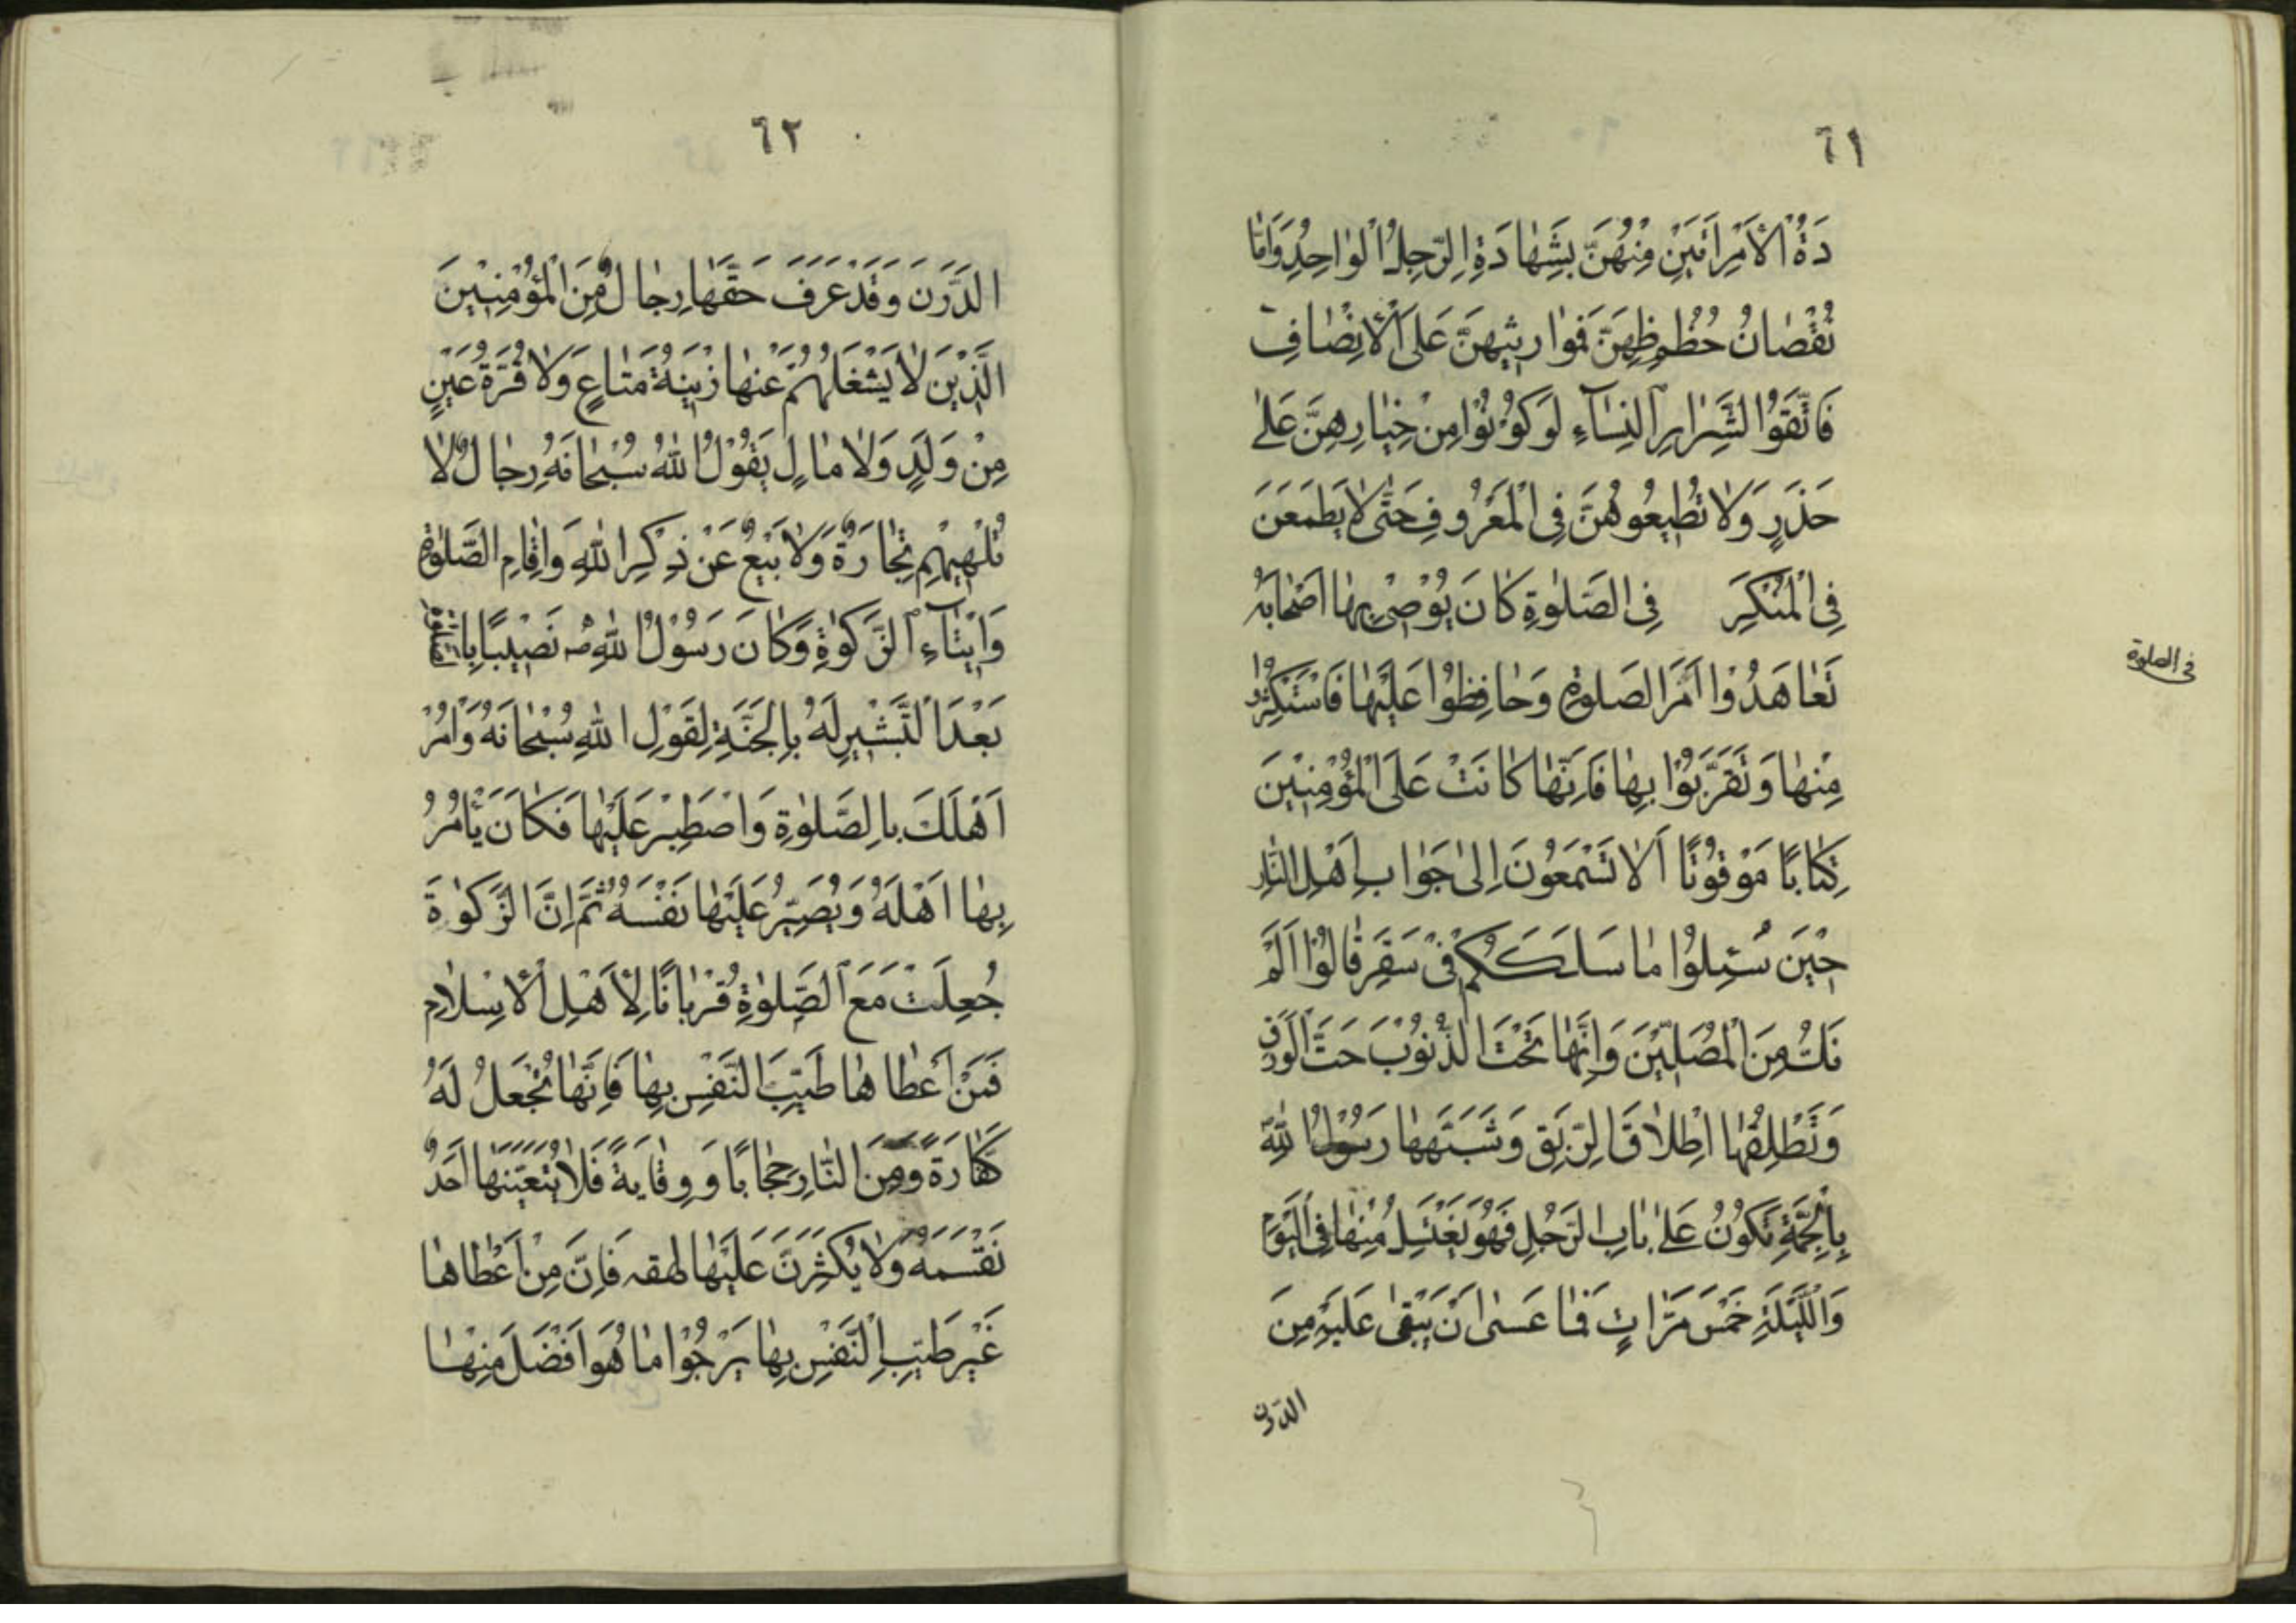 ٦١
دَةُ الْاَمْرِاَتَيْنِ مِنْهُنَّ بِشَهَادَةِ الرَّجِلُ الْوَاحِدِ وَاَمَّا
نُقْصَانُ حُظُوظِهِنَّ فَمَوَارِيثِهِنَّ عَلَى الْاَنِصَافِ
فَاتَّقَوُا لشَِّرَارِ النِسَآءِ لَوَ كُوْنُوْا مِنْ خِيَارِهِنَّ عَلىٰ
حَذَرٍ وَلَا تُطِيعُوهُنَّ فِي الْمَعْرُوفِ حَتّٰى لَا يَطْمَعَنَ
فِي الْمُنْكَرِ فِي الصَّلوٰةِ كَانَ يُوْصٖى بِهَا اَصْحَابَهُ
تَعَاهَدُوْا اَمْرَ الصَلوٰةِ وَحَافِظُوْا عَلَيْهَا فَاسْتَكْثِرُوْا
مِنْهَا وَتَقَرَّبُوْا بِهَا فَاِنَّهَا كَانَتْ عَلَى الْمُؤْمِنِيْنَ
كِتَابًا مَوْقُوْتًا اَلَا تَسْمَعُوْنَ اِلىٰ جَوَابِ اَهْلِ النَّارِ
حِيْنَ سُئِلُوْا مَا سَلَكَكُمْ فِىْ سَقَرَ قَالُوْا اَلَمْ
نَكُ مِنَ الْمُصَلِّيْنَ وَاِنَّهَا تَحُتُّ الذُّنُوْبَ حَتَّ الْوَرَقِ
وَتُطْلِقُهَا اِطْلَاقَ الرِّبَقِ وَشَبَّهَهَا رَسُوْلُ اللّٰهِ
بِالْحُمَّةِ تَكُوْنُ عَلىٰ بَابِ الرَّجُلِ فَهُوَ يَغْتَسِلُ مِنْهَا فِي الْيَوْمِ
وَاللَّيْلَةِ خَمْسَ مَرَّاتٍ فَمَا عَسٰى اَنْ يَبْقىٰ عَلَيْهِ مِنَ
الدرن
فى الصلوة
٦٢
الدَّرَنَ وَقَدْ عَرَفَ حَقَّهَا رِجَالٌ مِنَ الْمُؤْمِنِيْنَ
الَّذِيْنَ لَا يَشْغَلُهُمْ عَنْهَا زِيْنَةُ مَتَاعٍ وَلَا قُرَّةُ عَيْنٍ
مِنْ وَلَدٍ وَلَا مَالٍ يَقُوْلُ اللّٰهُ سُبْحَانَهُ رِجَالٌ لَا
تُلْهِيْهِمْ تِجَارَةٌ وَلَا بَيْعٌ عَنْ ذِكْرِ اللّٰهِ وَاِقَامِ الصَّلوٰةِ
وَاِيْتَآءِ الزَّكوٰةِ وَكَانَ رَسُوْلُ اللّٰهِ ص نَصِيْبًا بِالصَّلٰوةِ
بَعْدَ الْتَّبْشِيْرِ لَهُ بِالْجَنَّةِ لِقَوْلِ اللّٰهِ سُبْحَانَهُ وَامُرْ
اَهْلَكَ بِالصَّلوٰةِ وَاصْطَبِرْ عَلَيْهَا فَكَانَ يَأْمُرُ
بِهَا اَهْلَهُ وَيُصَبِّرُ عَلَيْهَا نَفْسَهُ ثُمَّ اِنَّ الزَّكوٰةَ
جُعِلَتْ مَعَ الصَّلوٰةِ قُرْبَانًا لِاَهْلِ الْاِسْلَامِ
فَمَنْ اَعْطَاهَا طَيِّبَ النَّفْسِ بِهَا فَاِنَّهَا تُجْعَلُ لَهُ
كَفَّارَةً وَمِنَ النَّارِ حِجَابًا وَوِقَايَةً فَلَا يُتْعِبَنَّهَا اَحَدٌ
نَفْسَهُ وَلَا يُكْثِرَنَّ عَلَيْهَا لهفه فَاِنَّ مَنْ اَعْطَاهَا
غَيْرَ طَيِّبِ الْنَّفْسِ بِهَا يَرْجُوْا مَا هُوَ اَفْضَلَ مِنْهَا